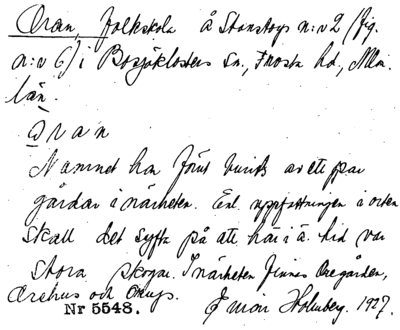 Oran, folkskola å Stanstorp n:o 2 (fig.
n:o 6) i Bosjöklosters Sn., Frosta hd., Mlm.
län.
Oran
Namnet har förut burits av ett par
gårdar i närheten. Enl. uppfattningen i orten
skall det syfta på att här i ä. tid var
stora skogar. I närheten finnes Oregården,
Orehus och Orup.
Nr 5548.
Emion Holmberg. 1927.